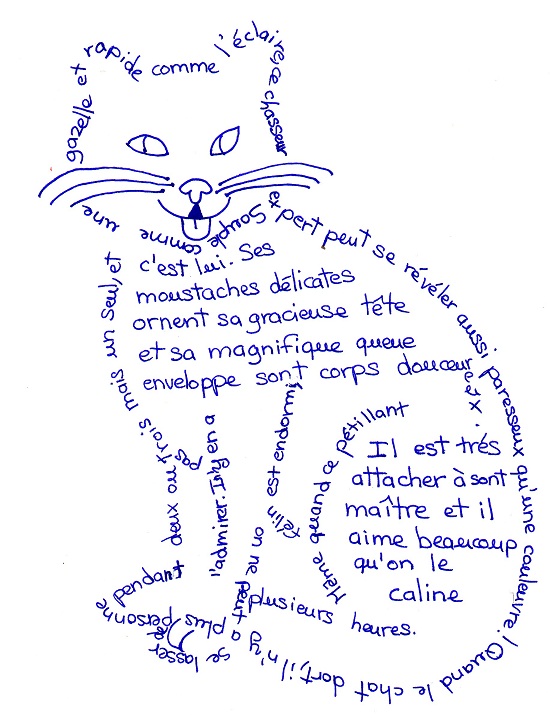 Souple comme une
gazelle et rapide comme l'éclaire, ce chasseur
expert peut se révéler aussi paresseux qu'une couleuvre! Quand le chat dort, il n'y a plus personne
pendant
plusieurs heures.
Même quand ce pétillant
félin est endormi,
on ne peut se lasser de
l'admirer. Il n'y en a
pas
deux ou trois mais un seul, et
c'est lui. Ses
moustaches délicates
ornent sa gracieuse tête
et sa magnifique queue
enveloppe sont corps douceureux.
Il est trés
attacher à sont
maître et il
aime beaucoup
qu'on le
caline